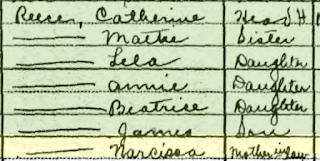 Reese, Catherine Head H
—— Mathe Sister
—— Lela Daughter
—— Annie Daughter
—— Beatrice Daughter
—— James Son
—— Narcissa Mother in law